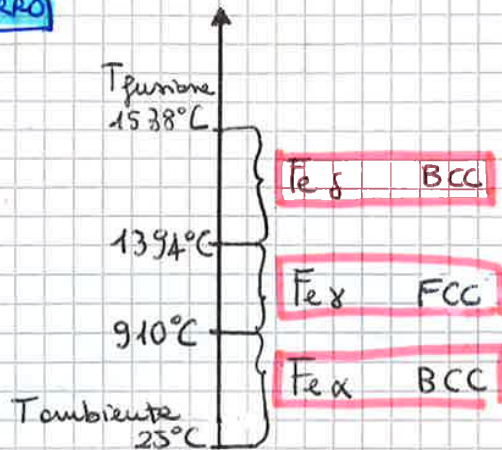 T fusione
1538°C
Fe δ BCC
1394°C
Fe γ FCC
910°C
Fe α BCC
Tambiente
25°C